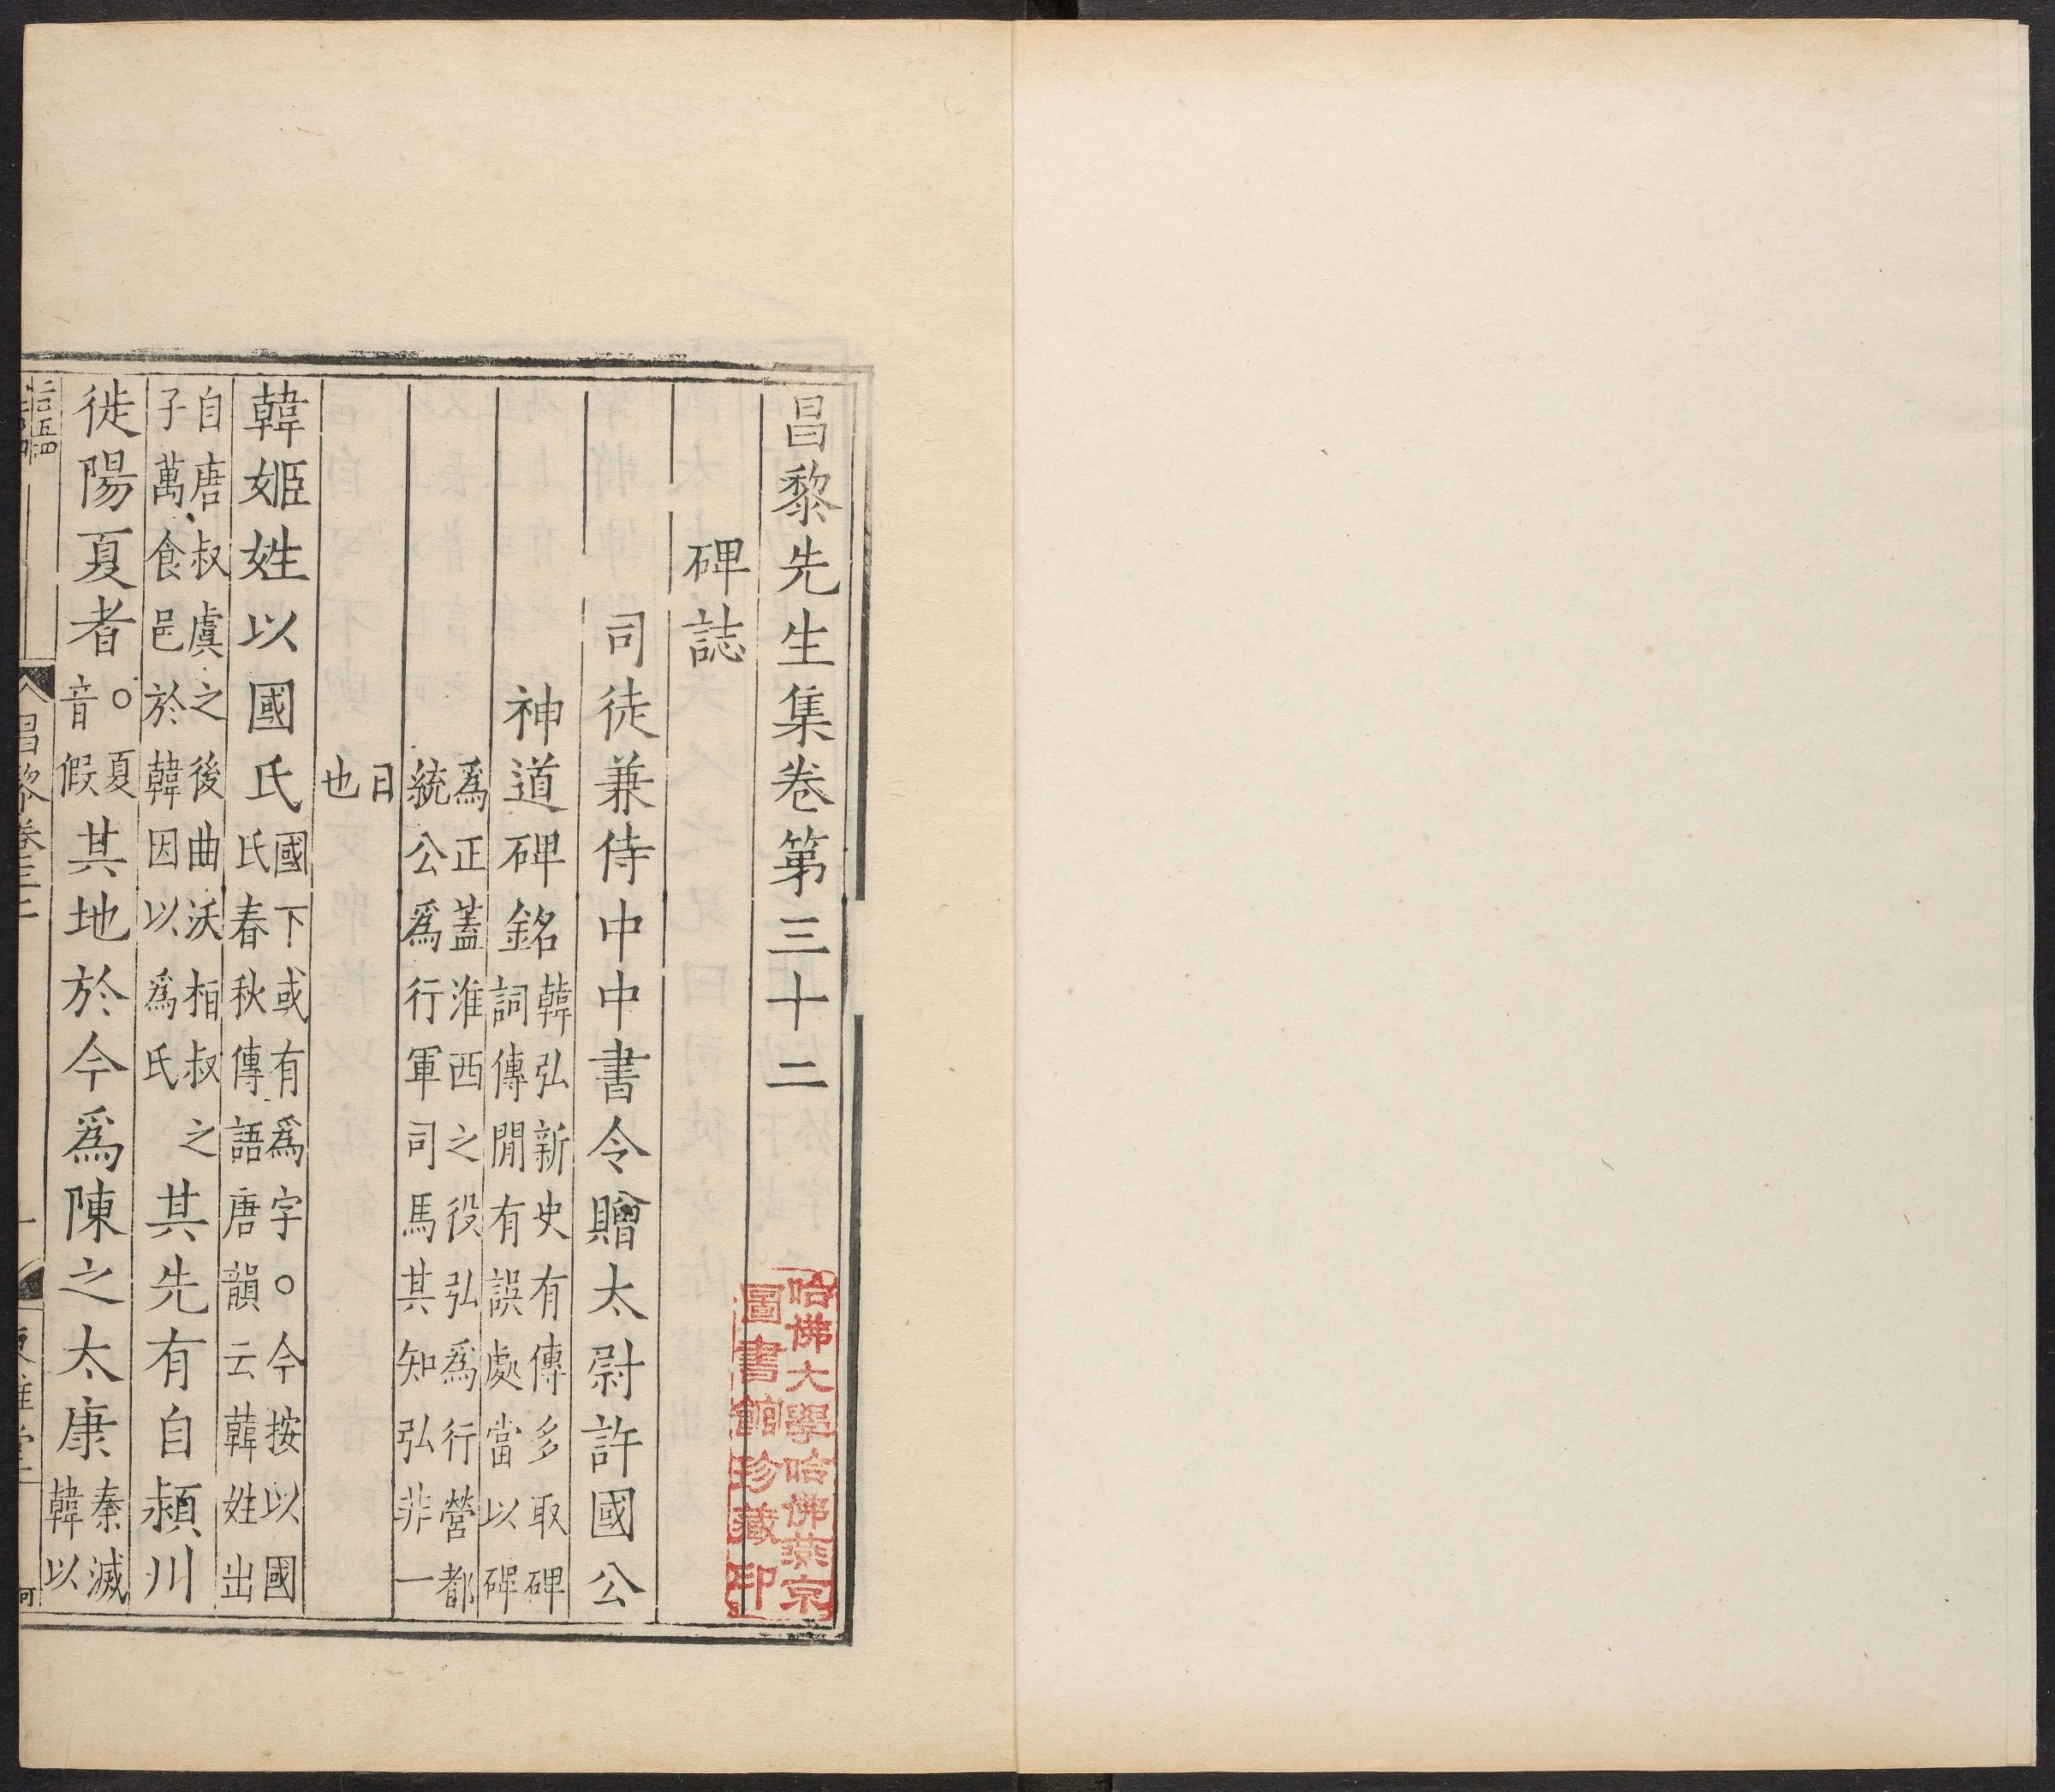 昌黎先生集卷第三十二
碑誌
司徒兼侍中中書令贈太尉許國公
神道碑銘
韓弘新史有傳多取碑
詞傳閒有誤處當以碑
爲正蓋淮西之役弘爲行營都
統公爲行軍司馬其知弘非一
日
也
韓姬姓以國氏
國下或有爲字○今按以國
氏春秋傳語唐韻云韓姓出
自唐叔虞之後曲沃桓叔之
子萬食邑於韓因以爲氏
其先有自潁川
徙陽夏者
○夏
音假
其地於今爲陳之太康
秦滅
韓以
昌黎卷三二
一
哈佛大學哈佛燕京
圖書館珍藏印